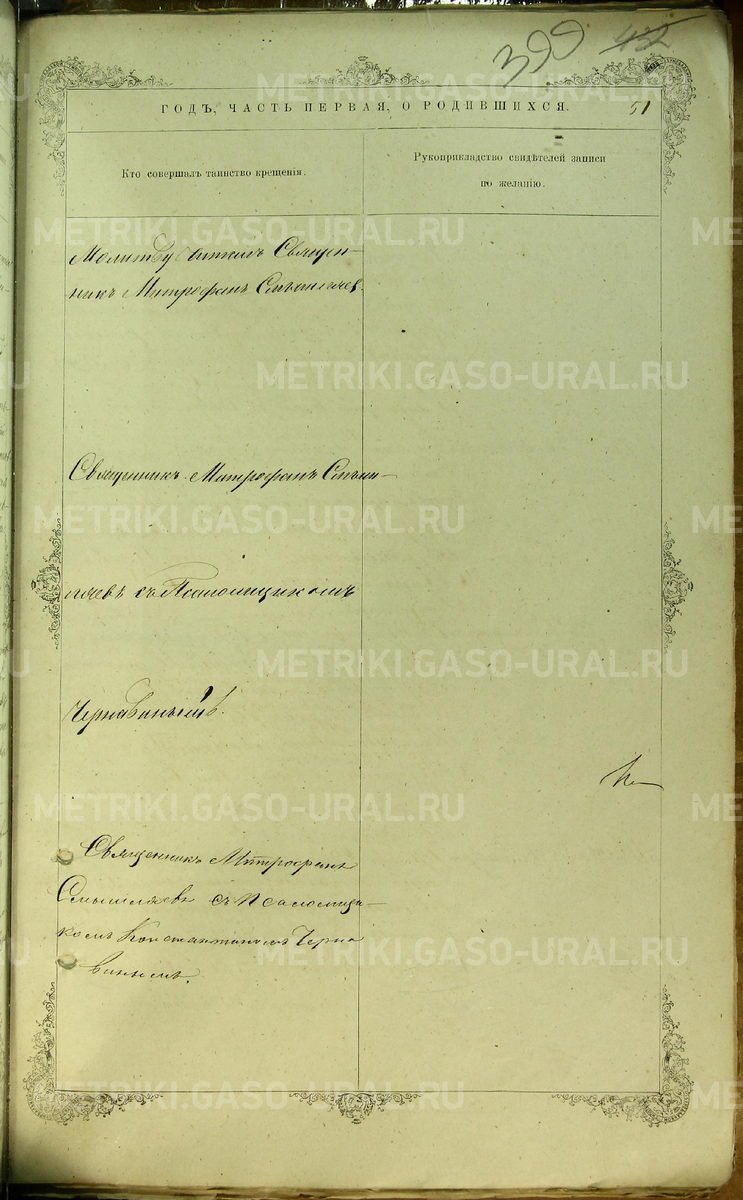 399 42
ГОДЪ, ЧАСТЬ ПЕРВАЯ, О РОДИВШИХСЯ. 51
Кто совершалъ таинство крещенія.
Рукоприкладство свидѣтелей записи
по желанію.
Молитву читалъ Священ-
никъ Митрофанъ Смышляевъ.
Священникъ Митрофанъ Смыш-
ляевъ съ Псаломщикомъ
Чернавинымъ.
Священникъ Митрофанъ
Смышляевъ съ Псаломщи-
комъ Константиномъ Черна
винымъ.
METRIKI.GASO-URAL.RU